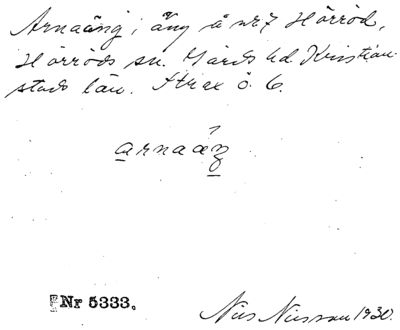 Arnaäng; äng å nr 7 Hörröd,
Hörröds sn. Gärds hd. Kristian-
stads län. Strax ö. 6.
arnaäŋ
Nr 5333.
Nils Nilsson 1930.